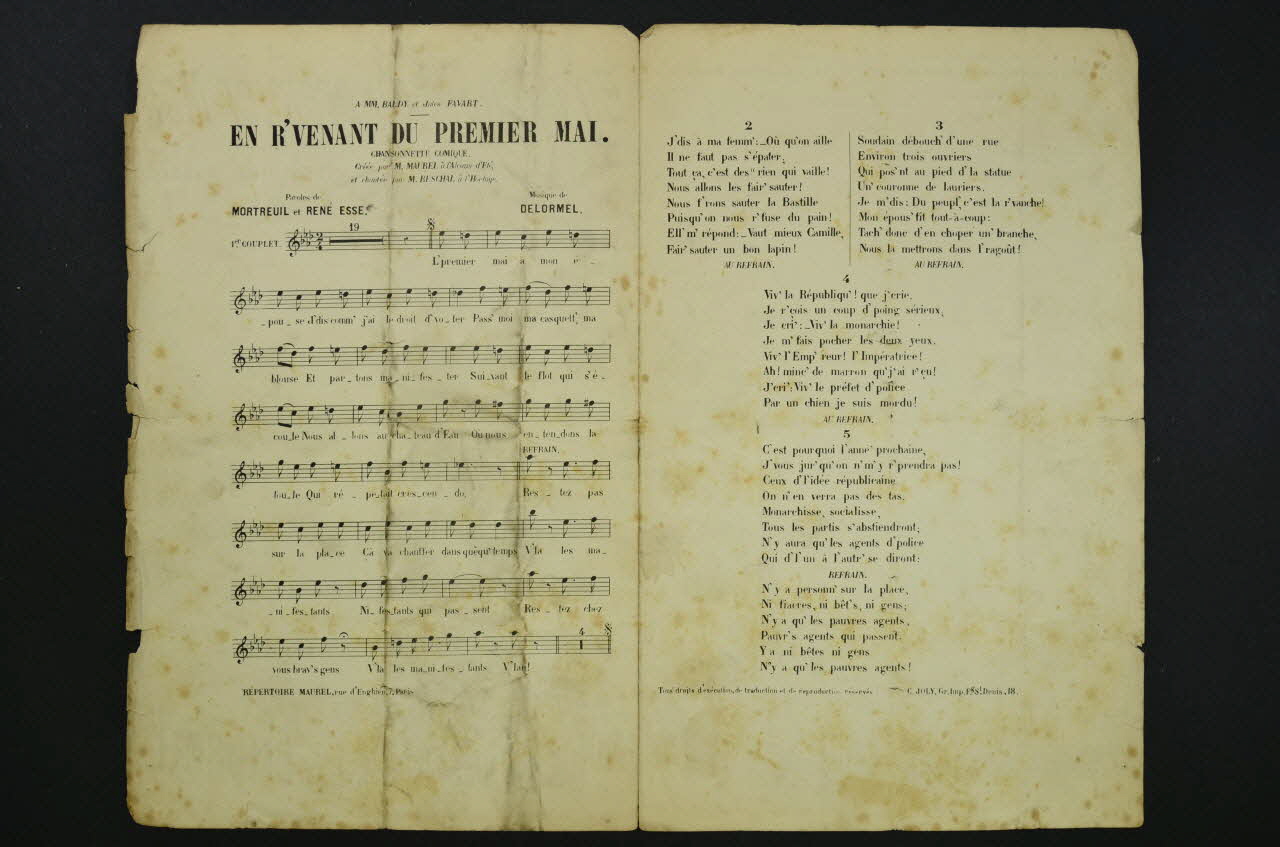 A MM. BALDY et Jules FAVART.
EN R'VENANT DU PREMIER MAI.
CHANSONNETTE COMIQUE.
Créée par M. MAUREL à l'Alcazar d'Eté,
et chantée par M. RESCHAL à l'Horloge.
Paroles de
MORTREUIL et RENÉ ESSE.
Musique de
DELORMEL.
19
1er COUPLET.
L'premier mai à mon é_
_pou_se J'dis comm' j'ai le droit d'vo_ter Pass' moi ma casquett', ma
blouse Et par_tons ma_ni_fes_ter Sui_vant le flot qui s'é_
cou_le Nous al_lons au cha_teau d'Eau Où nous en_ten_dons la
REFRAIN.
fou_le Qui ré_pe_tait crés_cen_do, Res_tez pas
sur la pla_ce Çà va chauffer dans quéqu'temps V'la les ma_
_ni_fes_tants Ni_fes_tants qui pas_sent Res_tez chez
4
vous brav's gens V'la les ma_ni_fes_tants V'lan!
RÉPERTOIRE MAUREL, rue d'Enghien, 7, Paris
2
J'dis à ma femm': _Où qu'on aille
Il ne faut pas s'épater,
Tout ça, c'est des "rien qui vaille!
Nous allons les fair' sauter!
Nous f'rons sauter la Bastille
Puisqu'on nous r'fuse du pain!
Ell' m' répond: _Vaut mieux Camille,
Fair' sauter un bon lapin!
AU REFRAIN.
3
Soudain débouch' d'une rue
Environ trois ouvriers
Qui pos'nt au pied d'la statue
Un' couronne de lauriers.
Je m'dis: Du peupl', c'est la r'vanche!
Mon épous' fit tout-à-coup:
Tach' donc d'en choper un' branche,
Nous la mettrons dans l'ragoût!
AU REFRAIN.
4
Viv' la Républiqu'! que j'crie,
Je r'çois un coup d'poing sérieux,
Je cri': _Viv' la monarchie!
Je m'fais pocher les deux yeux.
Viv' l'Emp'reur! l'Impératrice!
Ah! minc' de marron qu'j'ai r'çu!
J'cri': Viv' le préfet d'police
Par un chien je suis mordu!
AU REFRAIN.
5
C'est pourquoi l'anné' prochaine,
J'vous jur' qu'on n'm'y r'prendra pas!
Ceux d'l'idée républicaine
On n'en verra pas des tas.
Monarchisse, socialisse,
Tous les partis s'abstiendront,
N'y aura qu'les agents d'police
Qui d'l'un à l'autr' se diront:
REFRAIN.
N'y a personn' sur la place,
Ni fiacres, ni bêt's, ni gens;
N'y a qu' les pauvres agents,
Pauvr's agents qui passent.
Y a ni bêtes ni gens
N'y a qu' les pauvres agents!
Tous droits d'exécution, de traduction et de reproduction réservés
C. JOLY, Gr. Imp. F.g S.t Denis, 18.